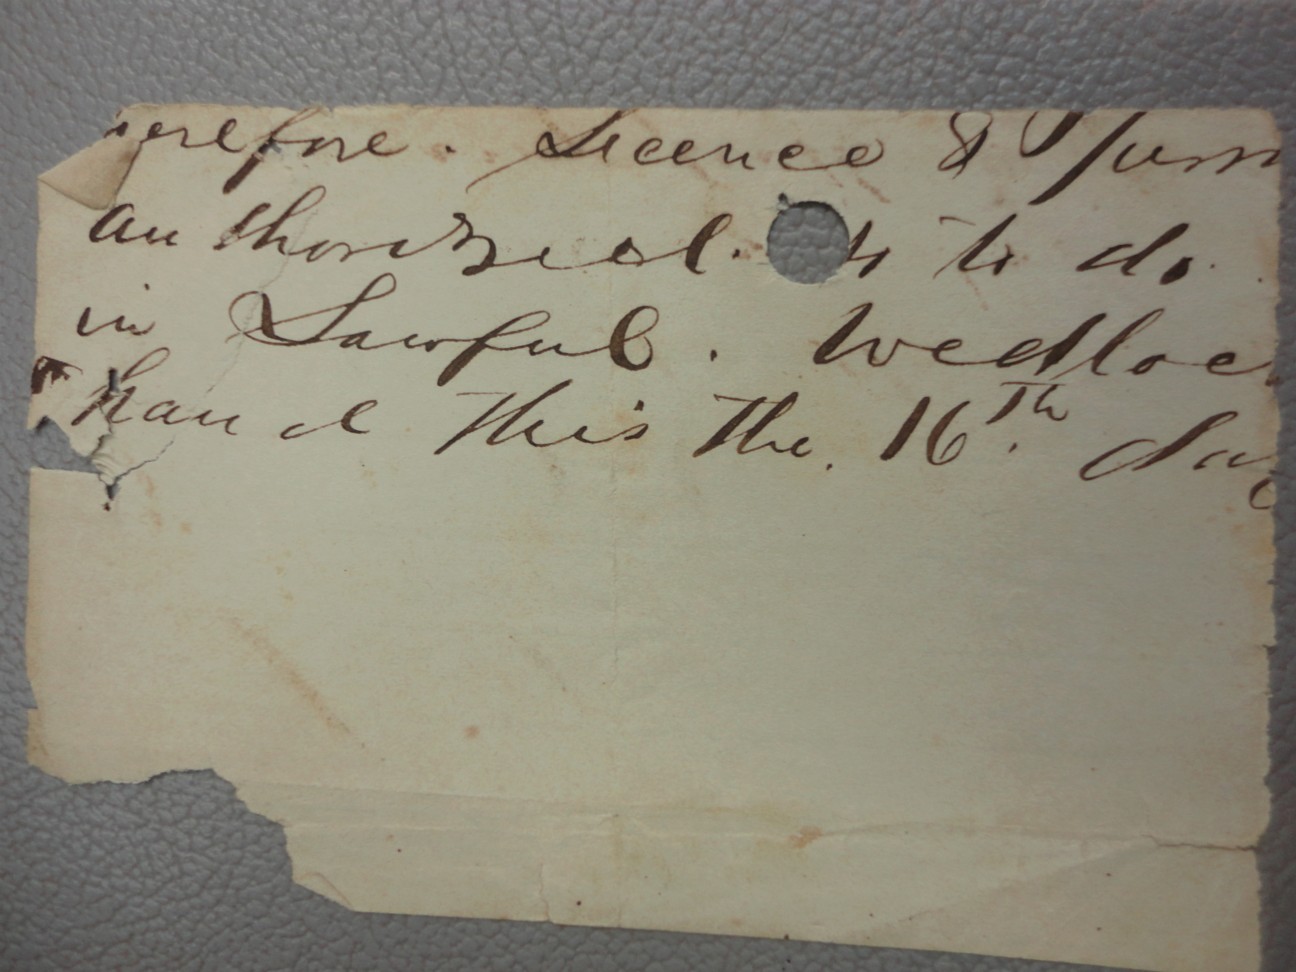 erefore. Licence & Perm
authorized. to do.
in Lawful. Wedloc
hand this the. 16th. day